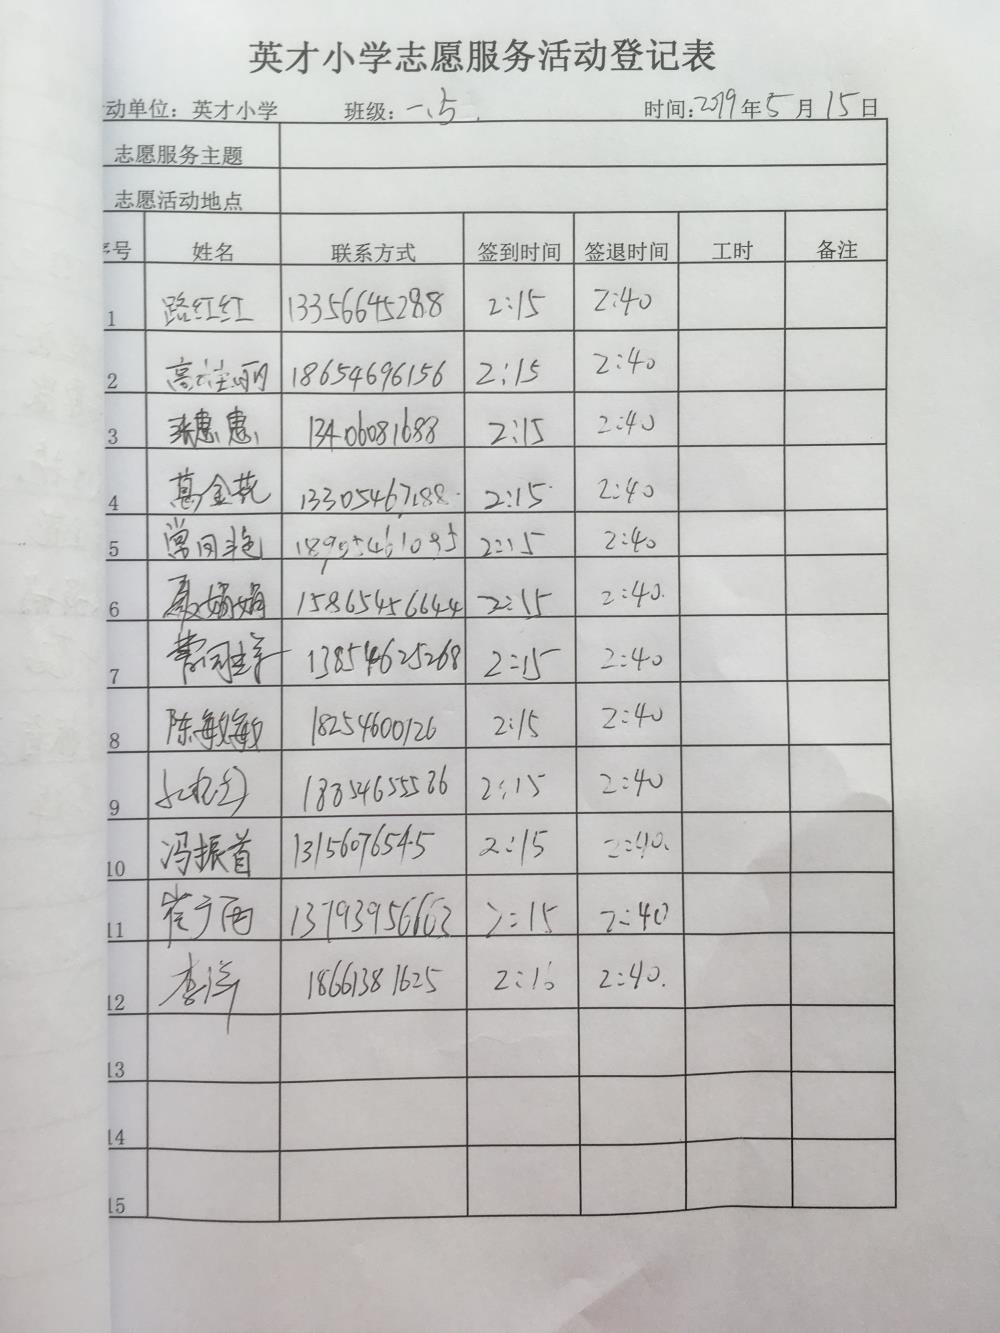 英才小学志愿服务活动登记表
动单位：英才小学 班级：一.5. 时间：2019年5月15日
志愿服务主题
志愿活动地点
号 姓名 联系方式 签到时间 签退时间 工时 备注
1 路红红 13356645288 2:15 2:40
2 高 丽 18654696156 2:15 2:40
3 张惠惠 13406081688 2:15 2:40
4 葛金花 13305467188 2:15 2:40
5 常同艳 2:15 2:40
6 聂娟娟 15865456644 2:15 2:40.
7 13854625268 2:15 2:40
8 陈敏敏 18254600126 2:15 2:40
9 2:15 2:40
10 冯振首 13156076545 2:15 2:40.
11 崔宁西 13793956663 2:15 2:40
12 李洋 18661381625 2:16 2:40.
13
14
15